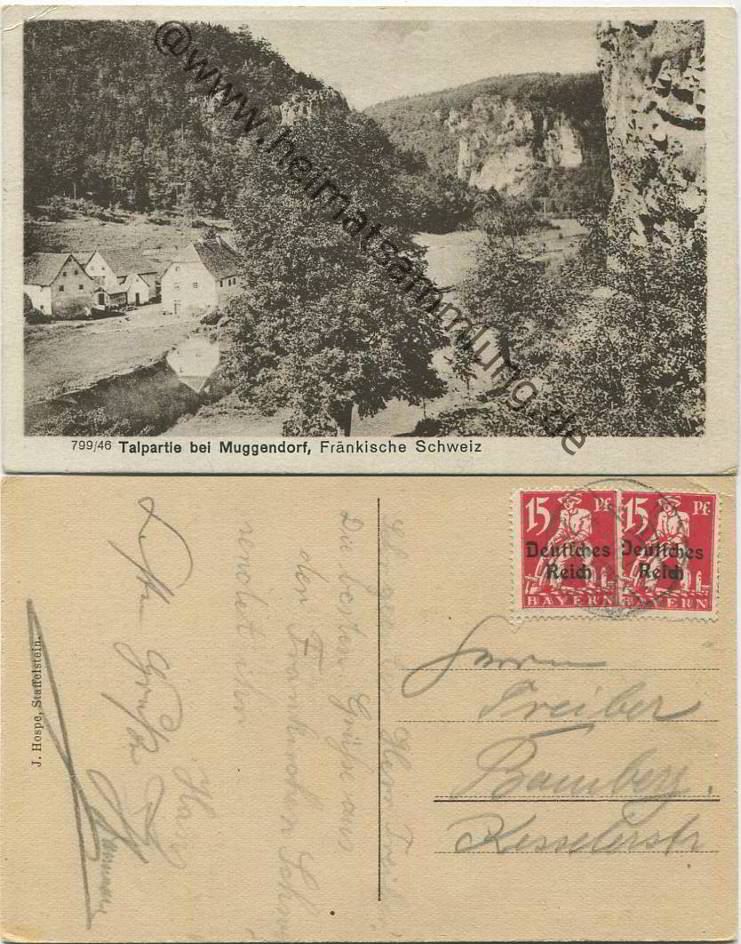 @www.heimatsammlung.de
799/46 Talpartie bei Muggendorf, Fränkische Schweiz
15 Pf. 15 Pf.
Deutsches Deutsches
Reich Reich
BAYERN BAYERN
Herrn
Treiber
Bamberg.
Kesslerstr
Herr
Die besten Grüße aus
der Fränkischen Schw
sendet Ihr
Hans
Grüße
J. Hospe, Staffelstein.